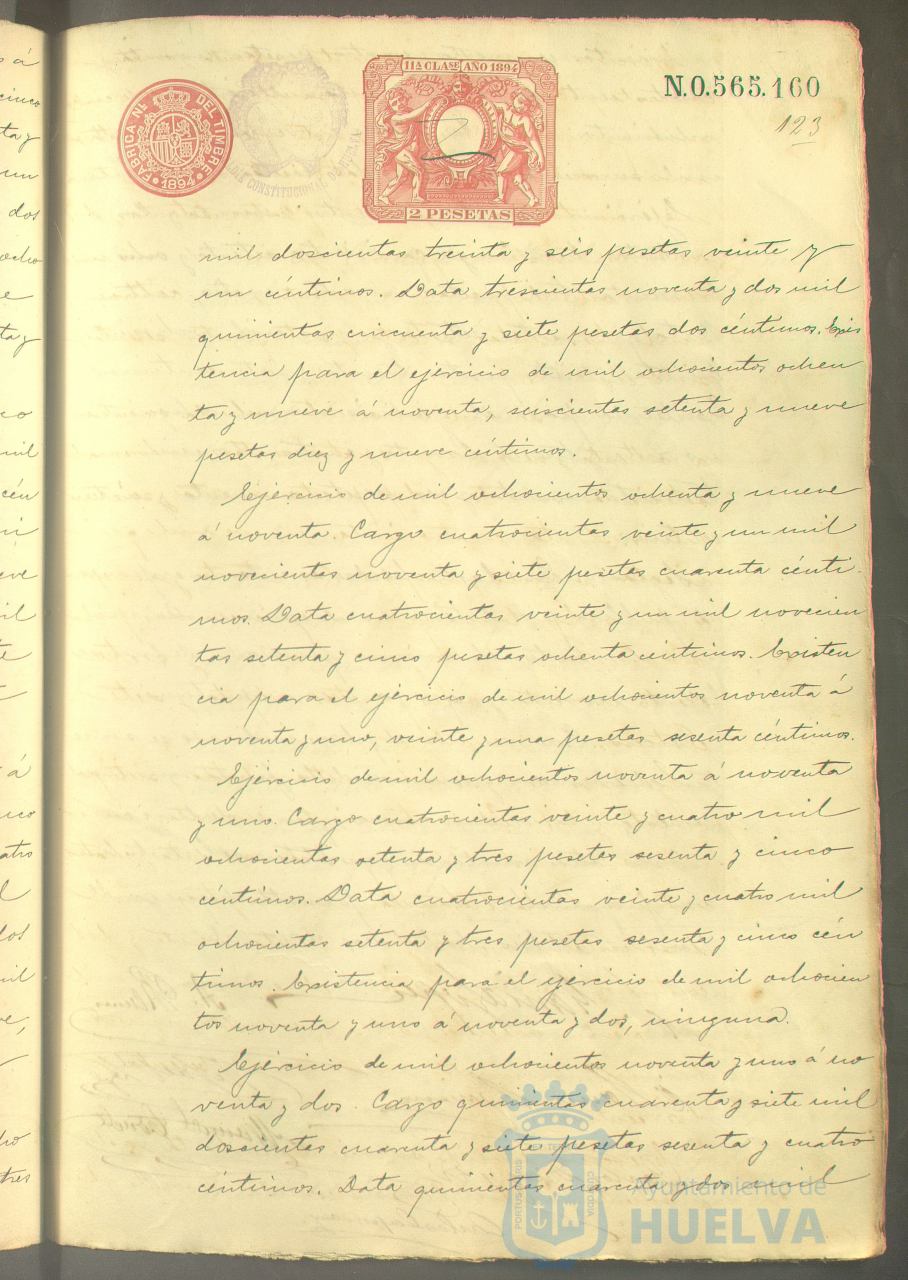 11ª CLASE AÑO 1894
N.0.565.160
FABRICA Nª DEL TIMBRE
1894
CONSTITUCIONAL DE
2 PESETAS
123
mil doscientas treinta y seis pesetas veinte y
un céntimos. Data trescientas noventa y dos mil
quinientas cincuenta y siete pesetas dos céntimos. Exis
tencia para el ejercicio de mil ochocientos ochen
ta y nueve á noventa, seiscientas setenta y nueve
pesetas diez y nueve céntimos.
Ejercicio de mil ochocientos ochenta y nueve
á noventa. Cargo cuatrocientas veinte y un mil
novecientas noventa y siete pesetas cuarenta cénti-
mos. Data cuatrocientas veinte y un mil novecien
tas setenta y cinco pesetas ochenta céntimos. Existen
cia para el ejercicio de mil ochocientos noventa á
noventa y uno, veinte y una pesetas sesenta céntimos.
Ejercicio de mil ochocientos noventa á noventa
y uno. Cargo cuatrocientas veinte y cuatro mil
ochocientas setenta y tres pesetas sesenta y cinco
céntimos. Data cuatrocientas veinte y cuatro mil
ochocientas setenta y tres pesetas sesenta y cinco cén
timos. Existencia para el ejercicio de mil ochocien
tos noventa y uno á noventa y dos, ninguna.
Ejercicio de mil ochocientos noventa y uno á no
venta y dos. Cargo quinientas cuarenta y siete mil
doscientas cuarenta y siete pesetas sesenta y cuatro
céntimos. Data quinientas cuarenta y dos mil
Ayuntamiento de
HUELVA